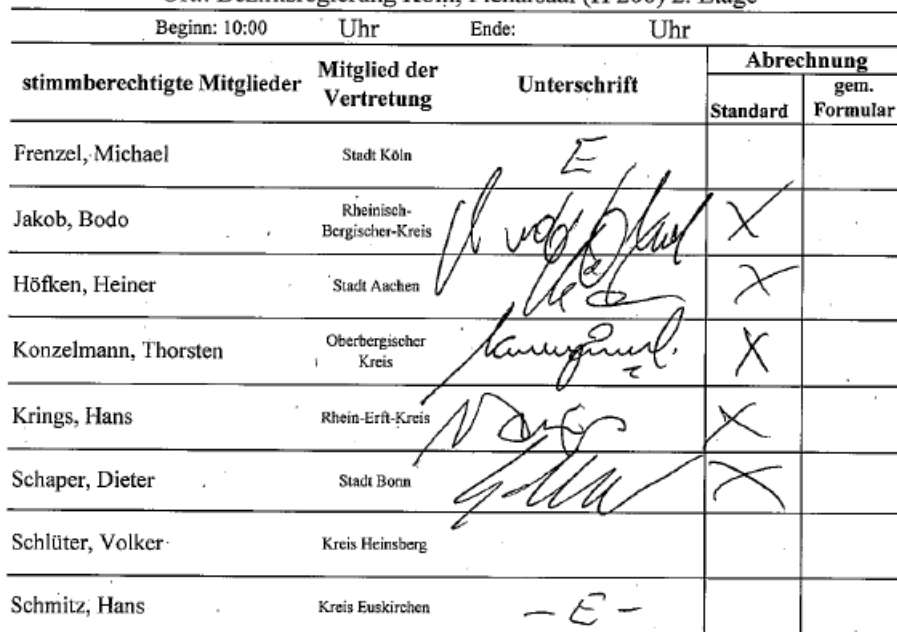 Ort: Bezirksregierung Köln, Plenarsaal (H 200) 2. Etage
Beginn: 10:00 Uhr Ende: Uhr
stimmberechtigte Mitglieder Mitglied der Vertretung Unterschrift Abrechnung
Standard gem. Formular
Frenzel, Michael Stadt Köln E
Jakob, Bodo Rheinisch-Bergischer-Kreis X
Höfken, Heiner Stadt Aachen X
Konzelmann, Thorsten Oberbergischer Kreis X
Krings, Hans Rhein-Erft-Kreis X
Schaper, Dieter Stadt Bonn X
Schlüter, Volker Kreis Heinsberg
Schmitz, Hans Kreis Euskirchen - E -